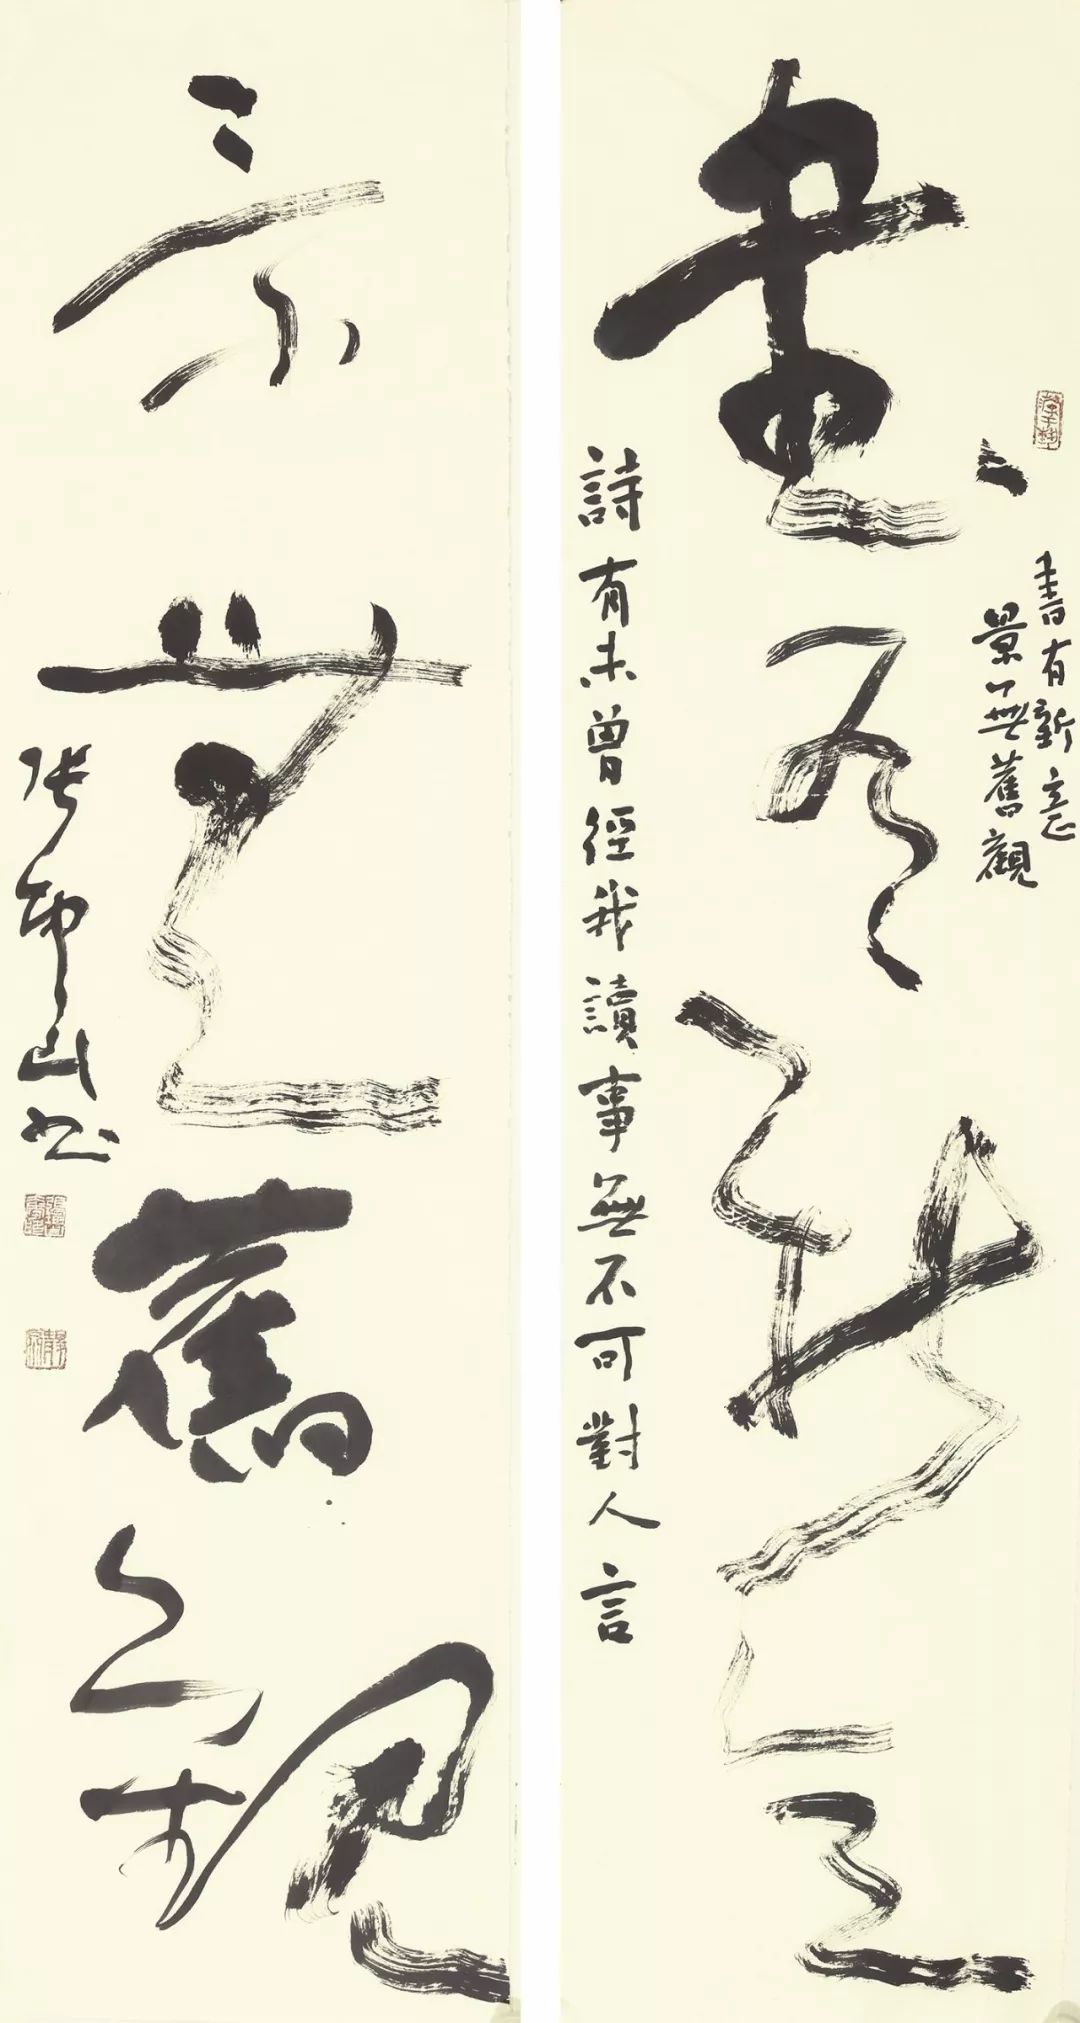 書有新意
書有新意
景無舊觀
詩有未曾經我讀事無不可對人言
景無舊觀
山书